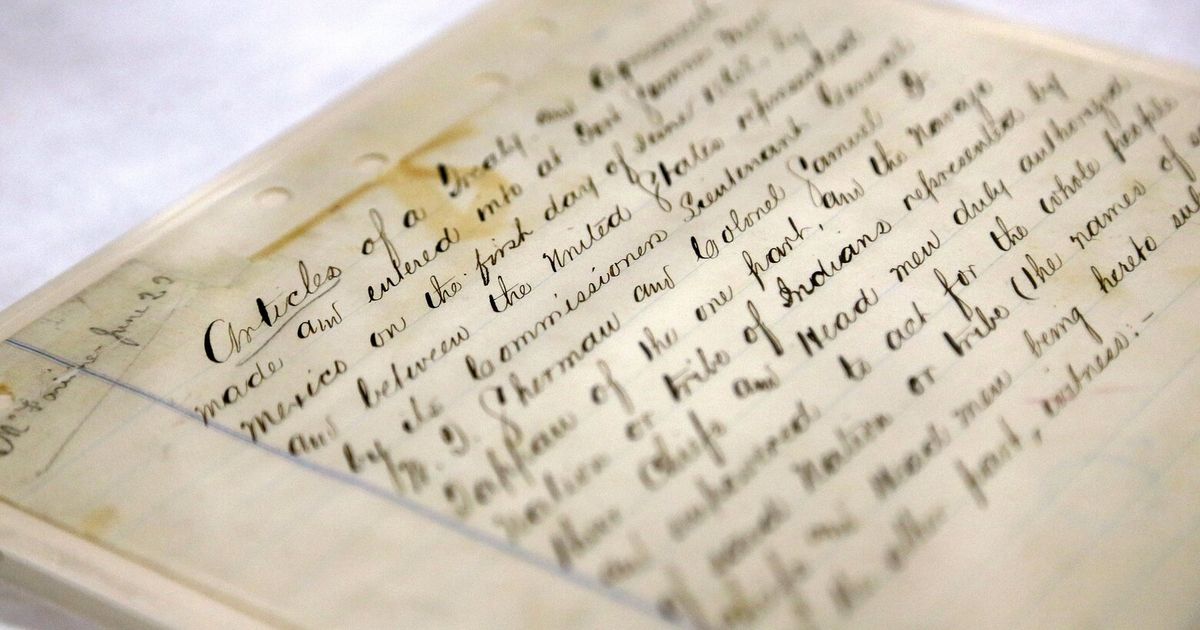 Articles of a Treaty and Agreement
made and entered into at Fort Sumner New
Mexico on the first day of June 1868. by
and between the United States represented
by its Commissioners Lieutenant General
W. T. Sherman and Colonel Samuel F.
Tappan of the one part, and the Navajo
Nation or tribe of Indians represented by
their Chiefs and Head men duly authorized
and empowered to act for the whole people
of said Nation or tribe (the names of
Chiefs and Head men being hereto sub
the other part, witness:-
June 30